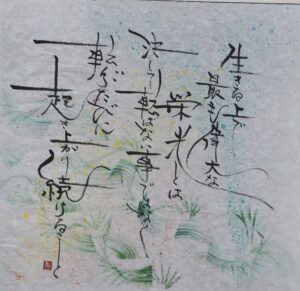 生きる上で
最も偉大な
栄光とは
決して転ばない事ではなく
転ぶたびに
起き上がり続けること